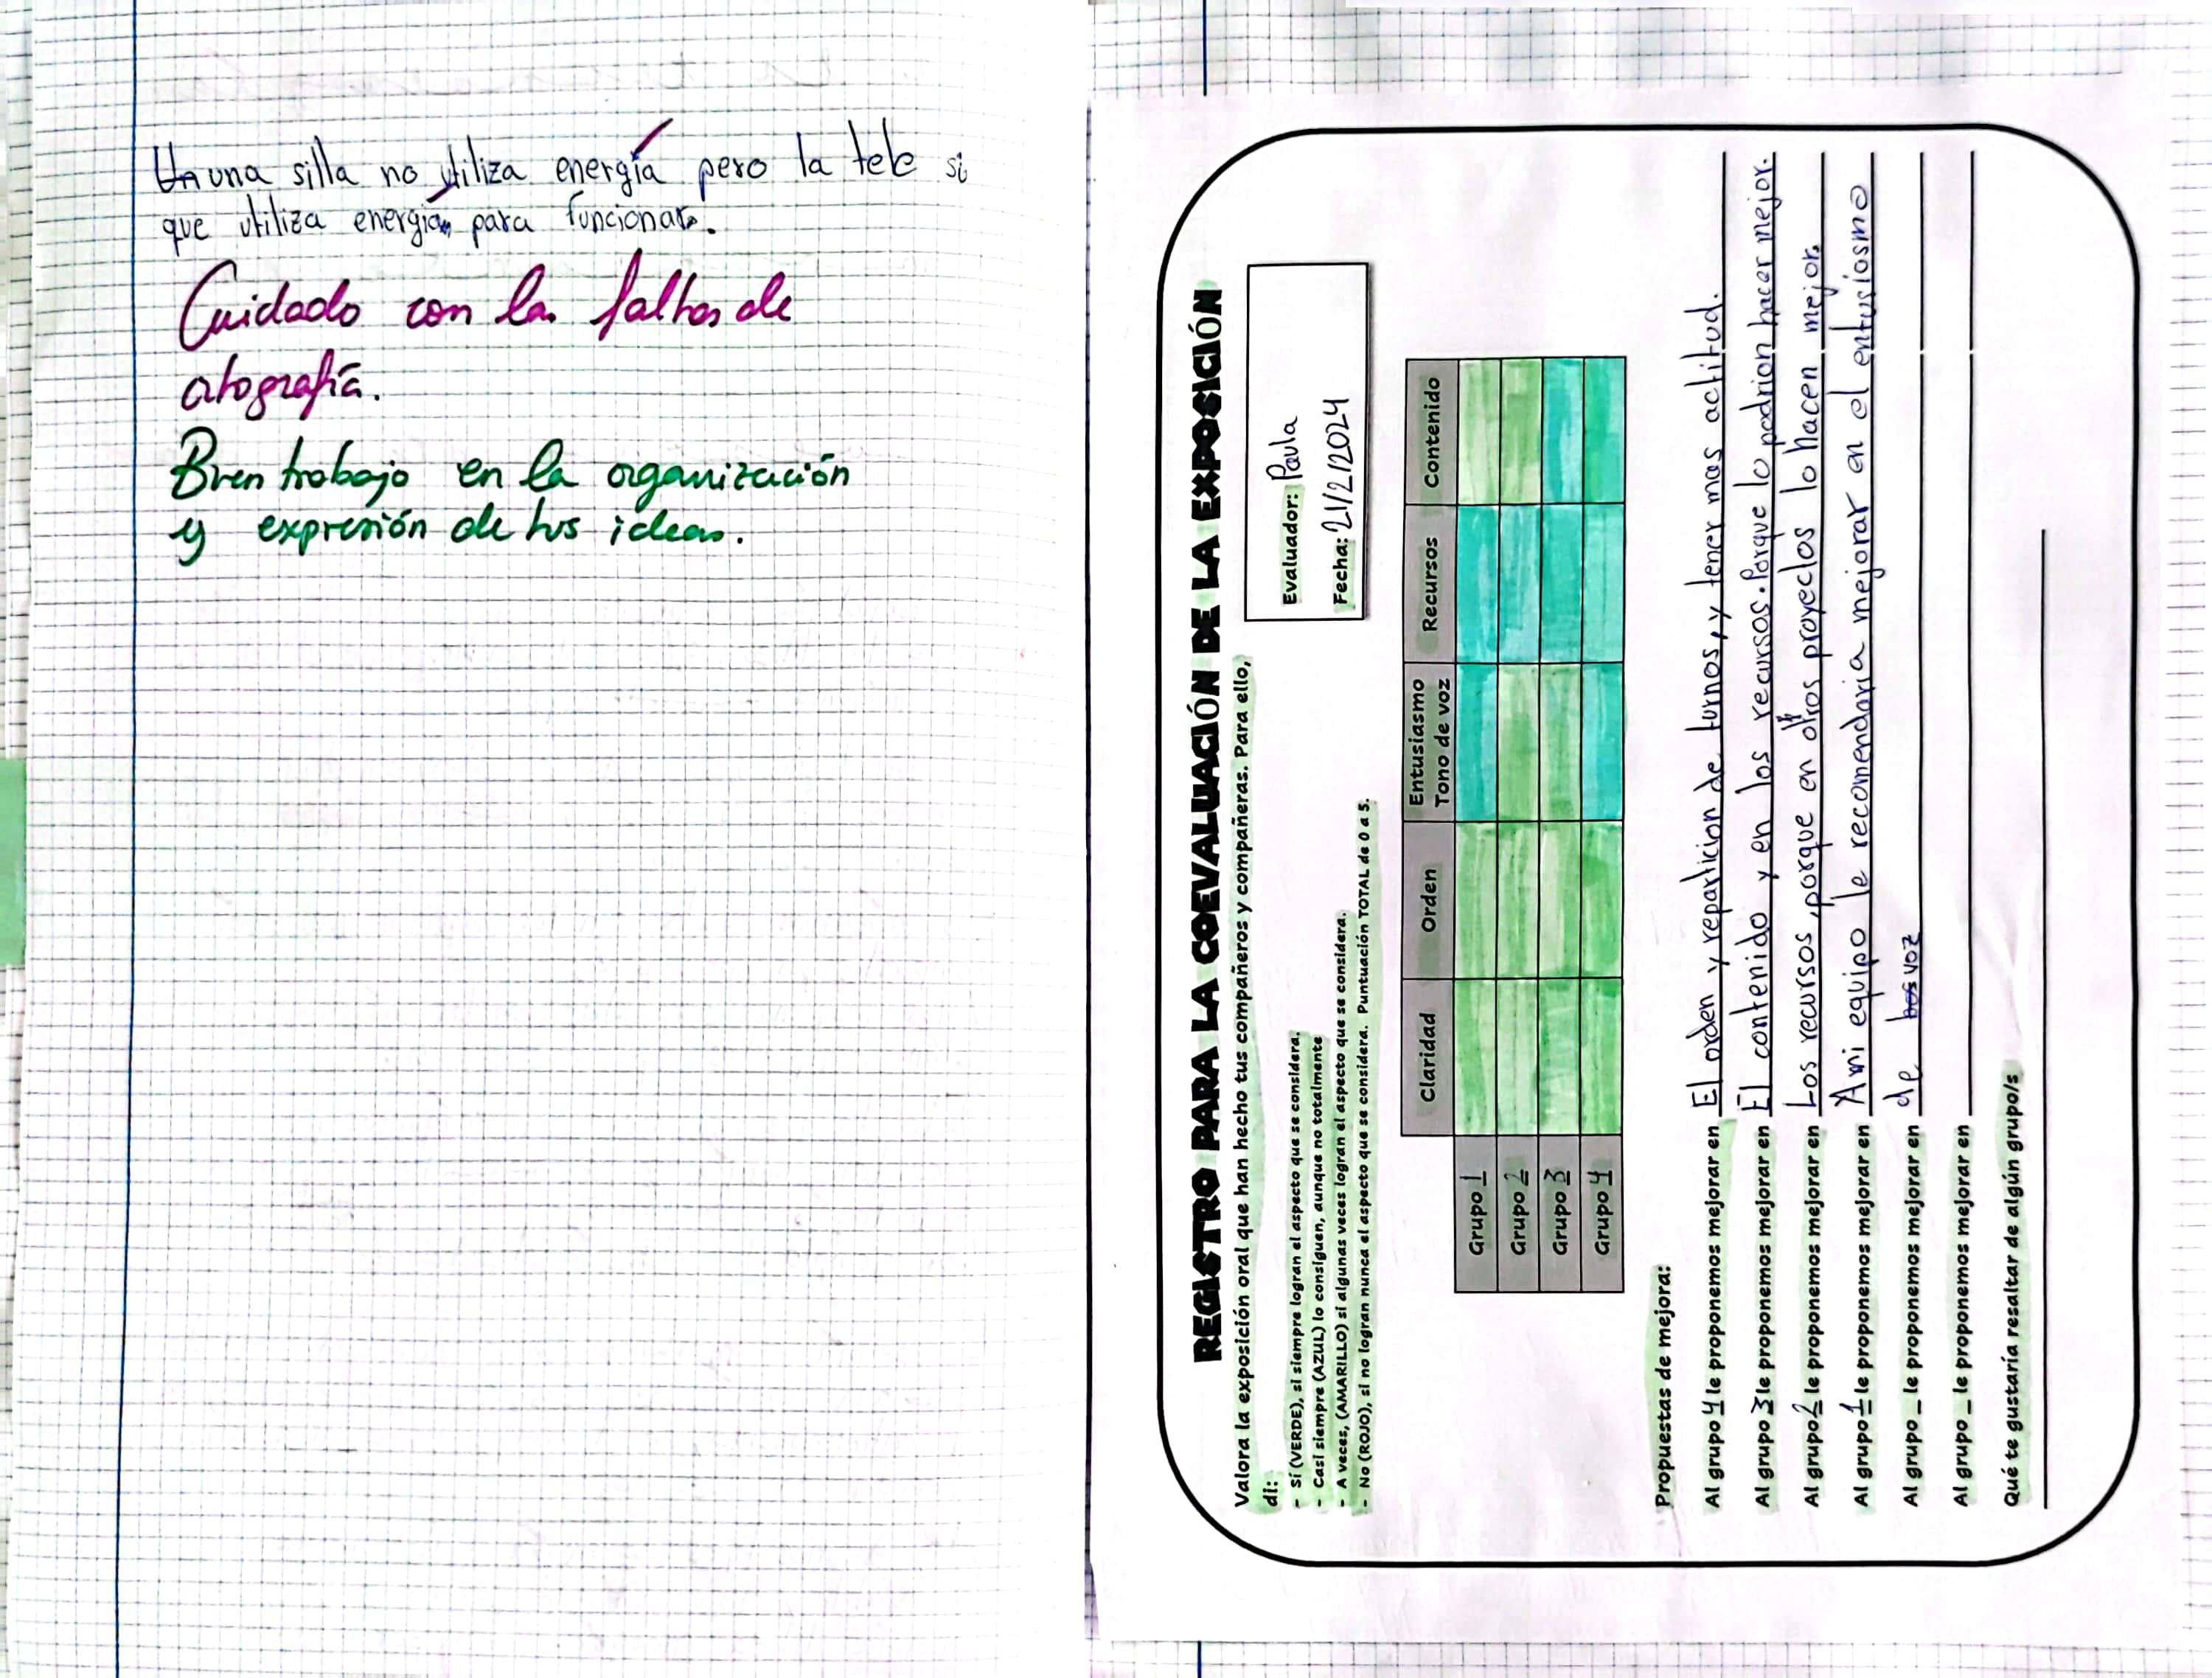 Un una silla no utiliza energía pero la tele si
que utiliza energía para funcionar.
Cuidado con las faltas de
ortografía.
Buen trabajo en la organización
y expresión de tus ideas.
REGISTRO PARA LA COEVALUACIÓN DE LA EXPOSICIÓN
Valora la exposición oral que han hecho tus compañeros y compañeras. Para ello,
di:
- Sí (VERDE), si siempre logran el aspecto que se considera.
- Casi siempre (AZUL) lo consiguen, aunque no totalmente
- A veces, (AMARILLO) si algunas veces logran el aspecto que se considera.
- No (ROJO), si no logran nunca el aspecto que se considera. Puntuación TOTAL de 0 a 5.
Evaluador: Paula
Fecha: 21/2/2024
Claridad Orden Entusiasmo Tono de voz Recursos Contenido
Grupo 1
Grupo 2
Grupo 3
Grupo 4
Propuestas de mejora:
Al grupo 4 le proponemos mejorar en El orden y reparticion de turnos, y tener mas actitud.
Al grupo 3 le proponemos mejorar en El contenido y en los recursos. Porque lo podrion hacer mejor.
Al grupo 2 le proponemos mejorar en Los recursos, porque en otros proyectos lo hacen mejor.
Al grupo 1 le proponemos mejorar en A mi equipo le recomendaria mejorar en el entusiosmo
Al grupo _ le proponemos mejorar en de bos voz
Al grupo _ le proponemos mejorar en
Qué te gustaría resaltar de algún grupo/s